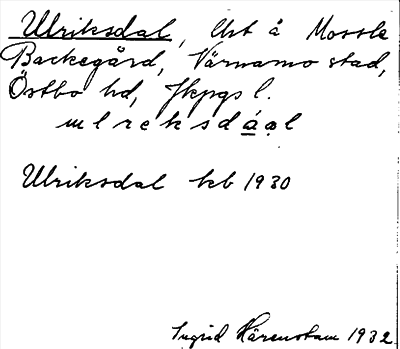 Ulriksdal, lht å Mossle
Backegård, Värnamo stad,
Östbo hd, Jkpgs l.
ulreksdáal
Ulriksdal kb 1930
Ingrid Härenstam 1932